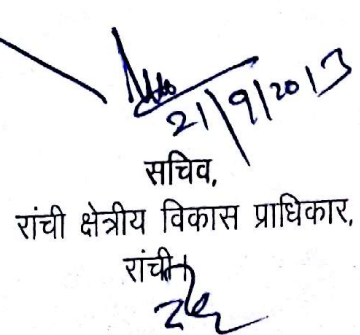 21/9/2013
सचिव,
रांची क्षेत्रीय विकास प्राधिकार,
रांची।